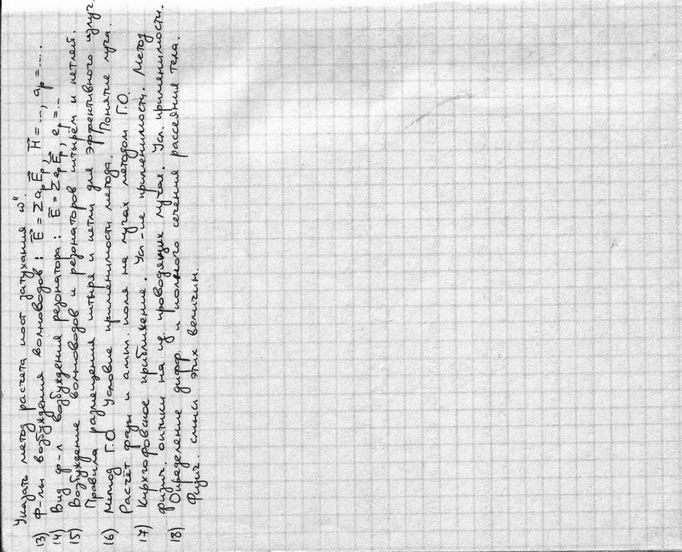 Указать метод расчета пост затухания ω"
13) Ф-лы возбуждения волноводов: E = Σ aₚEₚ, H = ..., aₚ = ....
14) Вид ф-л возбуждения резонатора: E = Σ eₚEₚ, eₚ = ...
15) Возбуждение волноводов и резонаторов штырём и петлей.
Правила размещения штыря и петли для эффективного излуч.
16) Метод Г.О. Условие применимости метода. Понятие луча.
Расчёт фазы и ампл. поля на лучах методом Г.О.
17) Кирхгофовское приближение. Усл-ие применимости. Метод
физич. оптики на проводящих лучах. Усл. применимости.
18) Определение дифф. и полного сечения рассеяние тела.
Физич. смысл этих величин.